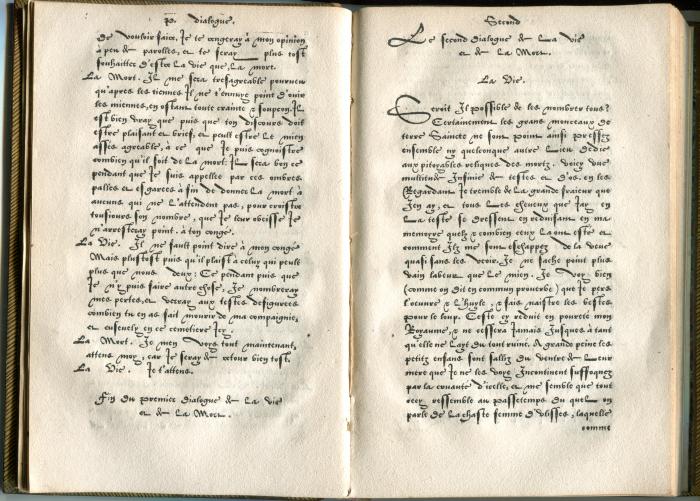 P. Dialogue.
De vouloir faire. Je te rengeray à mon opinion
à peu de parolles, et te feray plus tost
souhaitter d'estre La vie que, La mort.
La Mort. Il me sera tresagreable pourveu
qu'apres les tiennes Il ne t'ennuye point d'ouir
les miennes, en ostant toute crainte & soupçon. Il
est bien vray que puis que ton discours doit
estre plaisant et brief, et peult estre Le mien
assés agreable, à ce que Je puis cognoistre
combien qu'il soit de La mort: Il sera bon ce
pendant que Je suis appellée par ces ombres
palles et esgarées à fin de donner La mort à
aucuns qui ne L'attendent pas, pour croistre
tousiours son nombre, que Je leur obeisse Je
n'arresteray point à ton congé.
La Vie. Il ne fault point dire à mon congé
Mais plustost puis qu'il plaist à celuy qui peult
plus que nous deux: Ce pendant puis que
Je n'y puis faire autre chose, Je nombreray
mes pertes, et verray aux testes defigurées
combien tu en as fait mourir de ma compaignie,
et enseuely en ce cemetiere Icy.
La Mort. Je m'en voys tout maintenant,
attens moy, car Je seray de retour bien tost.
La Vie. Je t'attens.
Fin du premier Dialogue de La vie
et de La Mort.
Second
Le second dialogue de La vie
et de La Mort.
La Vie.
Seroit Il possible de les nombrer tous?
Certainement les grans monceaux de
terre Saincte ne sont point ainsi pressez
ensemble ny quelconque autre Lieu dedié
aux pitoyables reliques des mortz. voicy une
multitude Infinie de testes et d'os, en les
Regardant Je tremble de La grande fraieur que
J'en ay, et tous Les cheveux que J'ay en
La teste se dressent en reduisant en ma
memoyre quelz & combien ceux La ont esté et
comment Ilz me sont eschappez de la veue
quasi sans les veoir. Je ne sache point plus
vain labeur que Le mien. Je voy bien
(comme on dit en commun proverbe) que Je pers
l'oeuvre & L'huyle, & fais naistre les bestes
pour le loup. Ceste cy reduit en poureté mon
Royaume, & ne cessera Jamais Jusques à tant
qu'elle ne L'ayt du tout ruiné. A grande peine les
petitz enfans sont saillis du ventre de Leur
mere que Je ne les voye Incontinent suffoquez
par la cruauté d'icelle, et me semble que tout
cecy ressemble au passetemps du quel on
parle de La chaste femme d'Ulisses, laquelle
comme